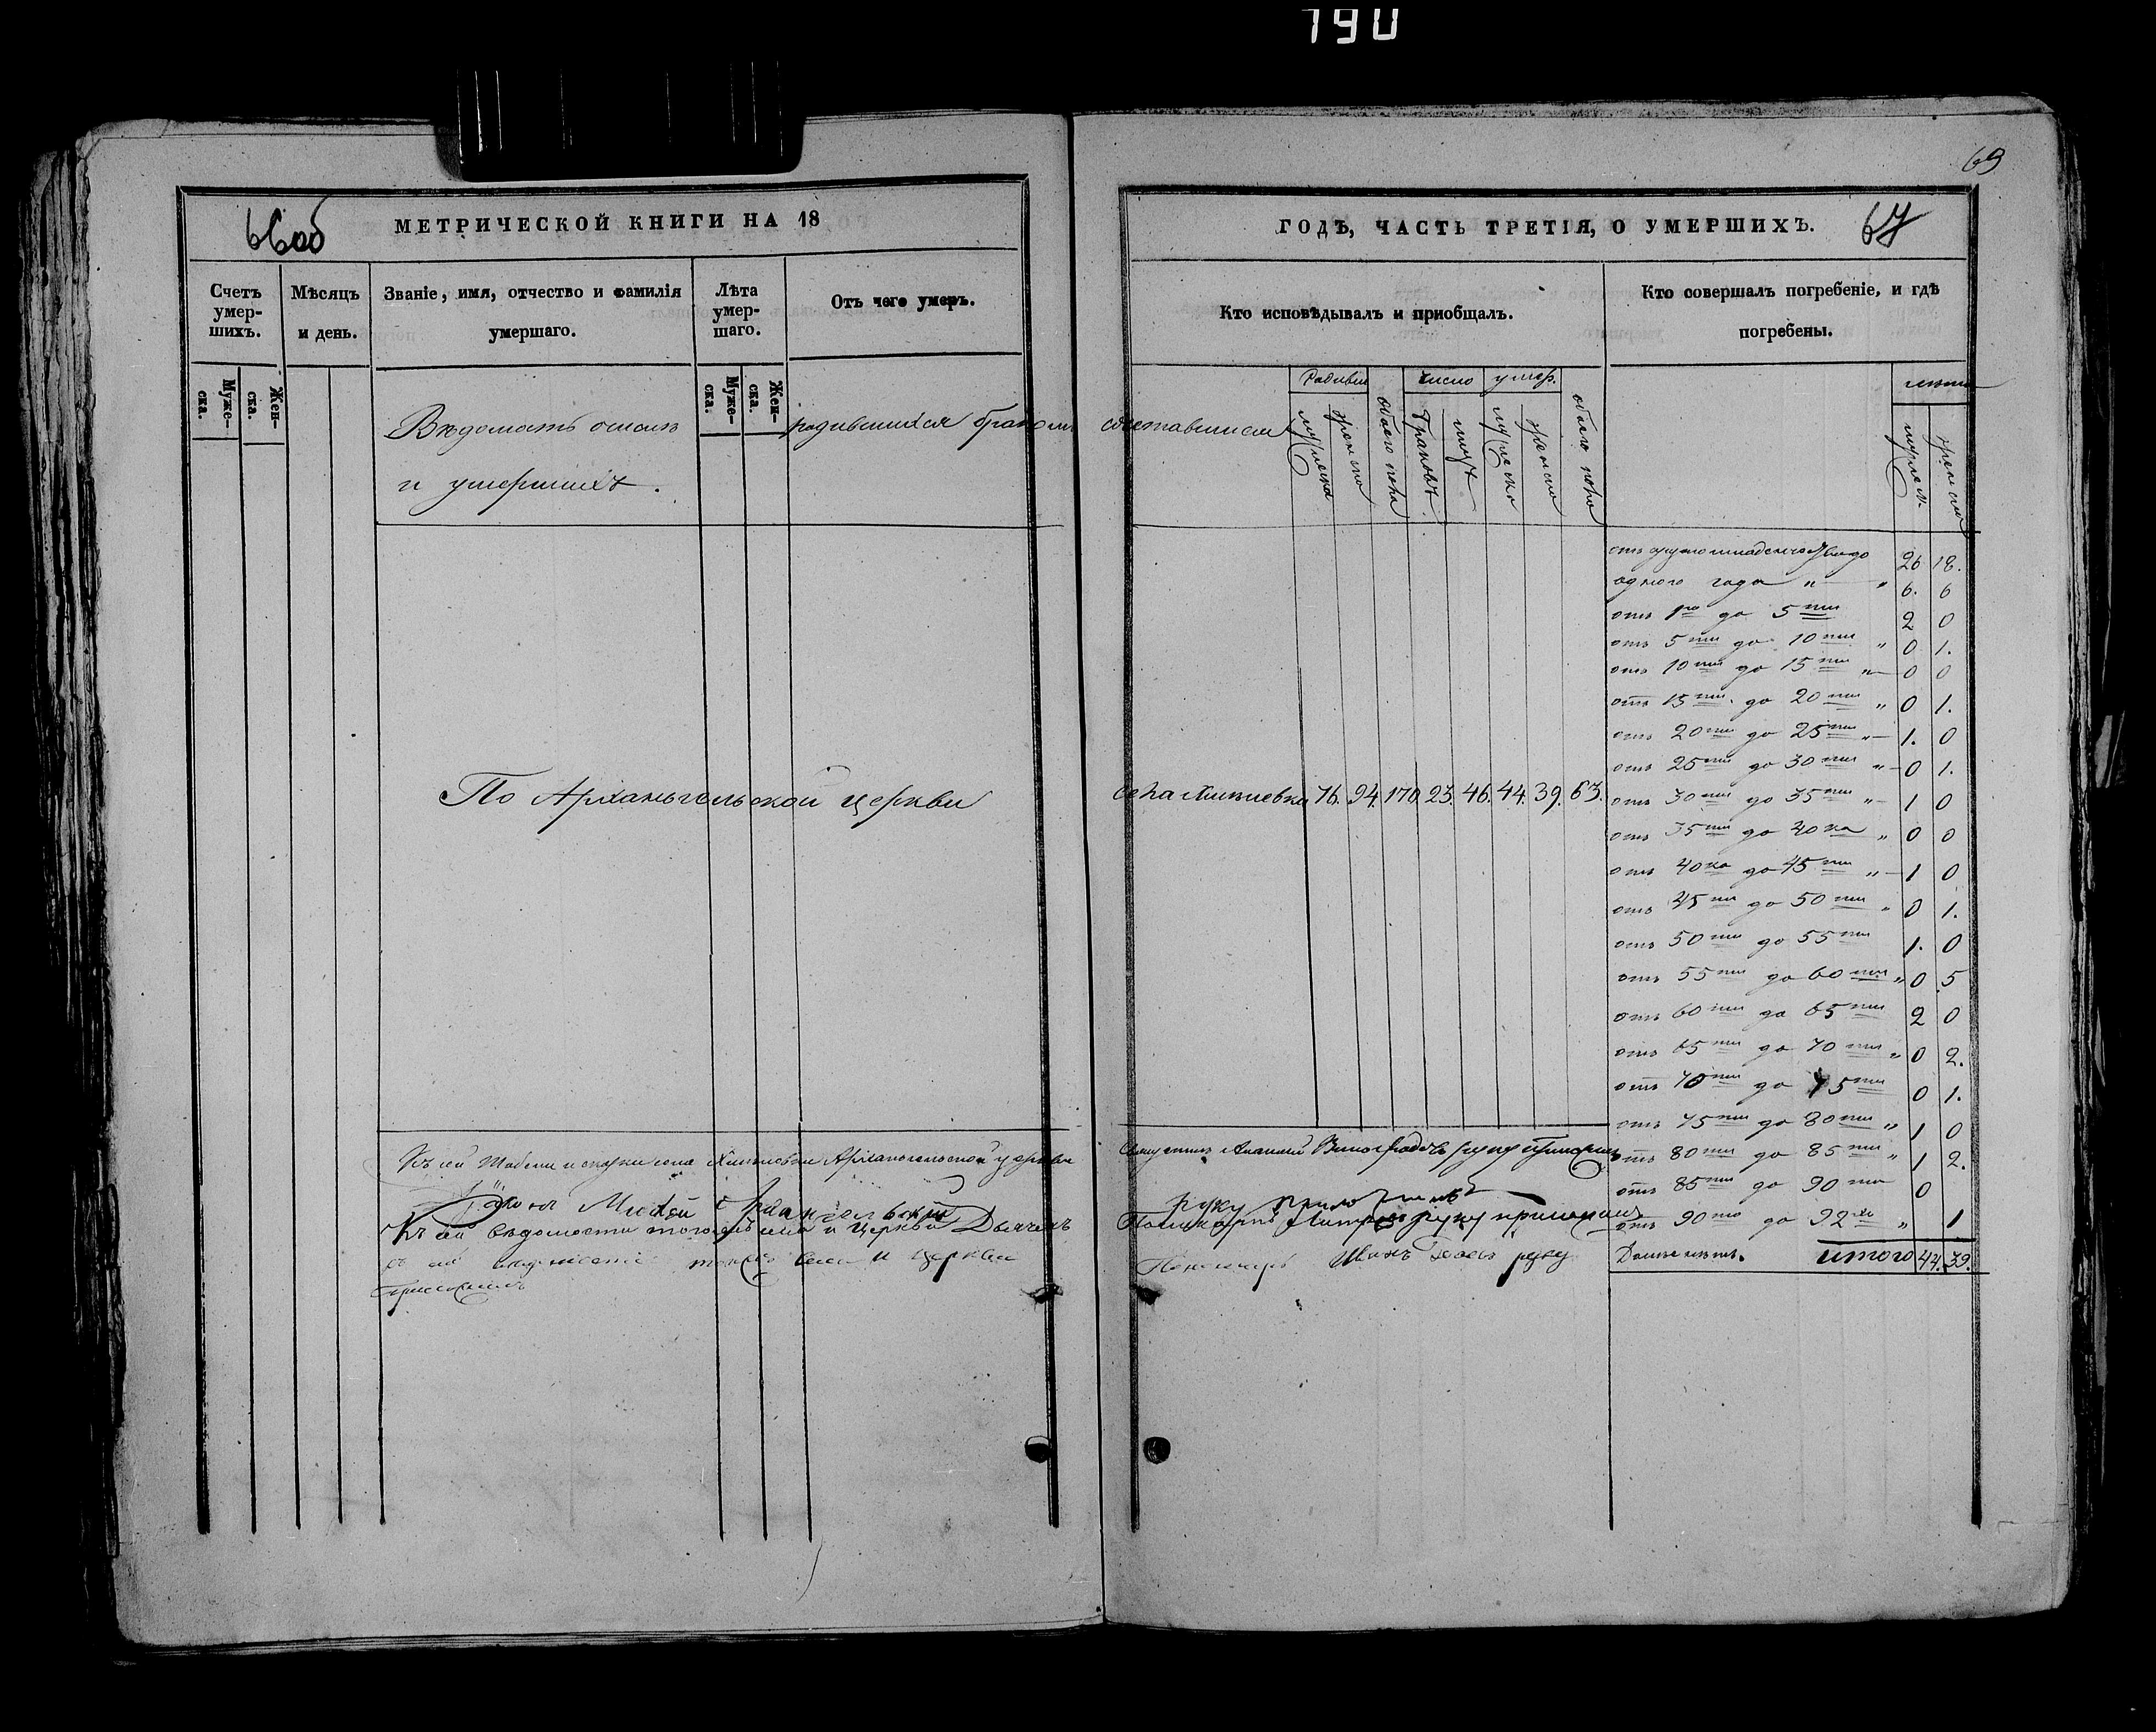 190
69
66об
МЕТРИЧЕСКОЙ КНИГИ НА 18
ГОДЪ, ЧАСТЬ ТРЕТІЯ, О УМЕРШИХЪ.
67
Счетъ умер-шихъ.
Муже-ска.
Жен-ска.
Мѣсяцъ и день.
Званіе, имя, отчество и фамилія умершаго.
Лѣта умер-шаго.
Муже-ска.
Жен-ска.
Отъ чего умеръ.
Кто исповѣдывалъ и приобщалъ.
Кто совершалъ погребеніе, и гдѣ погребены.
Вѣдомость о числѣ родившихся бракомъ сочетавшихся
и умершихъ.
Родивш
мужеска
женска
обоего пола
число
браковъ
умер.
мужеска
женска
обоего пола
лѣта
мужеск.
женска
По Архангельской церкви
села 76. 94. 170 23. 46. 44. 39. 63.
до 26 18.
одного года " " 6. 6
отъ 1го до 5ти 2 0
отъ 5ти до 10ти " 0 1.
отъ 10ти до 15ти " 0 0
отъ 15ти до 20ти " 0 1.
отъ 20ти до 25ти " 1. 0
отъ 25ти до 30ти " 0 1.
отъ 30ти до 35ти " 1 0
отъ 35ти до 40ка " 0 0
отъ 40ка до 45ти " 1 0
отъ 45ти до 50ти " 0 1.
отъ 50ти до 55ти 1. 0
отъ 55ти до 60ти " 0 5
отъ 60ти до 65ти 2 0
отъ 65ти до 70ти " 0 2.
отъ 70ти до 75ти 0 1.
отъ 75ти до 80ти " 1 0
отъ 80ти до 85ти " 1 2.
отъ 85ти до 90ти 0
отъ 90то до 92хъ " 1
итого 44. 39.
Къ сей села Архангельской церкви
Священникъ Виноградовъ руку приложилъ
Архангельскій
руку приложилъ
Къ сей вѣдомости тогожъ села и церкви Дьячекъ
руку приложилъ
села и церкви
Пономарь Иванъ руку
приложилъ